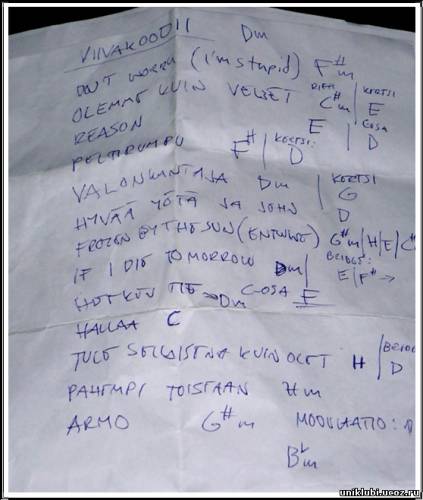 VIIVAKOODII Dm
DON'T WORRY (I'm stupid) F#m
RIFF: | KERTSI
OLEMME KUIN VELJET C#m | E
REASON E | COSA D
PELTIRUMPU F# | KERTSI: D
VALONKANTAJA Dm | KERTSI G
HYVÄÄ YÖTÄ JA JOHN D
FROZEN BY THE SUN G#m|H|E|C#
IF I DIE TOMORROW Dm| E|F# →
HETKEN TIE → Dm C-OSA E
HALLAA C
TULE SELLAISENA KUIN OLET H | D
PAHEMPI TOISTAAN Hm
ARMO G#m MODULAATIO:
Bbm
uniklubi.ucoz.ru